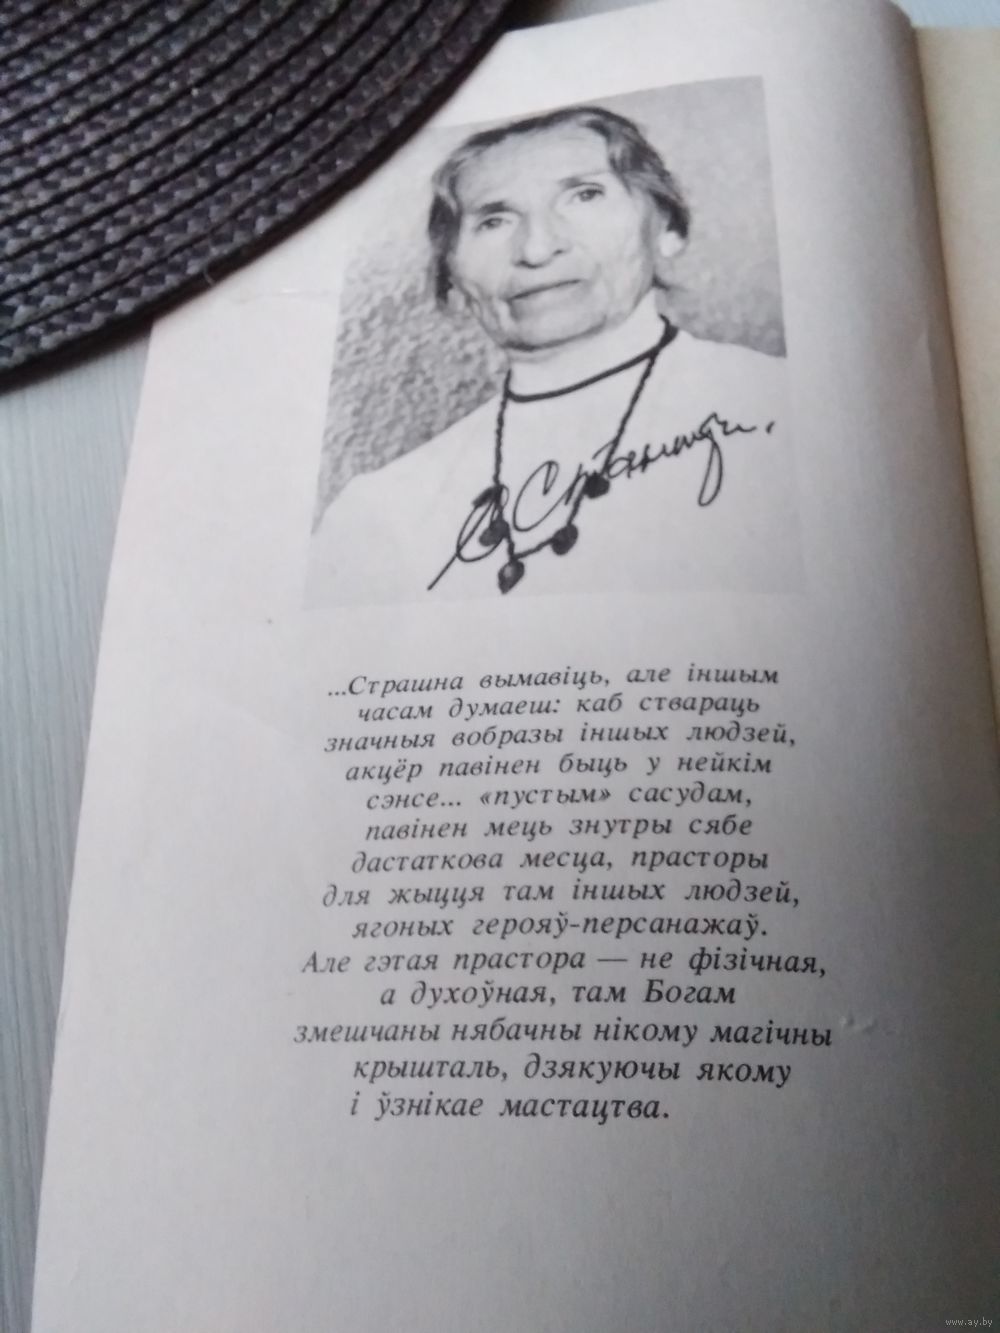 ...Страшна вымавіць, але іншым
часам думаеш: каб ствараць
значныя вобразы іншых людзей,
акцёр павінен быць у нейкім
сэнсе... «пустым» сасудам,
павінен мець знутры сябе
дастаткова месца, прасторы
для жыцця там іншых людзей,
ягоных герояў-персанажаў.
Але гэтая прастора — не фізічная,
а духоўная, там Богам
змешчаны нябачны нікому магічны
крышталь, дзякуючы якому
і ўзнікае мастацтва.
www.ay.by